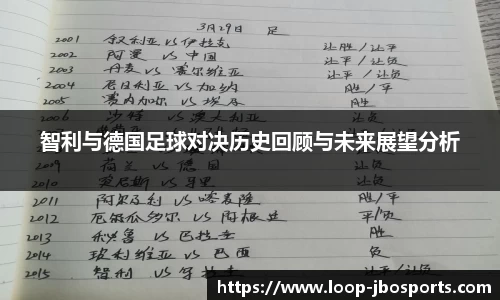 3月29日 足
2001 叙利亚 VS 伊拉克 让胜/让平
2002 阿曼 VS 中国 让平/让负
2003 丹麦 VS 塞尔维亚 让平/让负
2004 尼日利亚 VS 加纳 胜/平
2005 塞内加尔 VS 埃及 胜
2006 沙特 VS 澳大利亚
智利与德国足球对决历史回顾与未来展望分析
2009 荷兰 VS 德国 让负
2010 VS 让负
2011 阿尔及利 VS 喀麦隆 胜/平
2012 厄瓜多尔 VS 阿根廷 平/负
2013 秘鲁 VS 巴拉圭 胜
2014 玻利维亚 VS 巴西 负
2015 智利 VS 乌拉圭 让平/让负
https://www.loop-jbosports.com